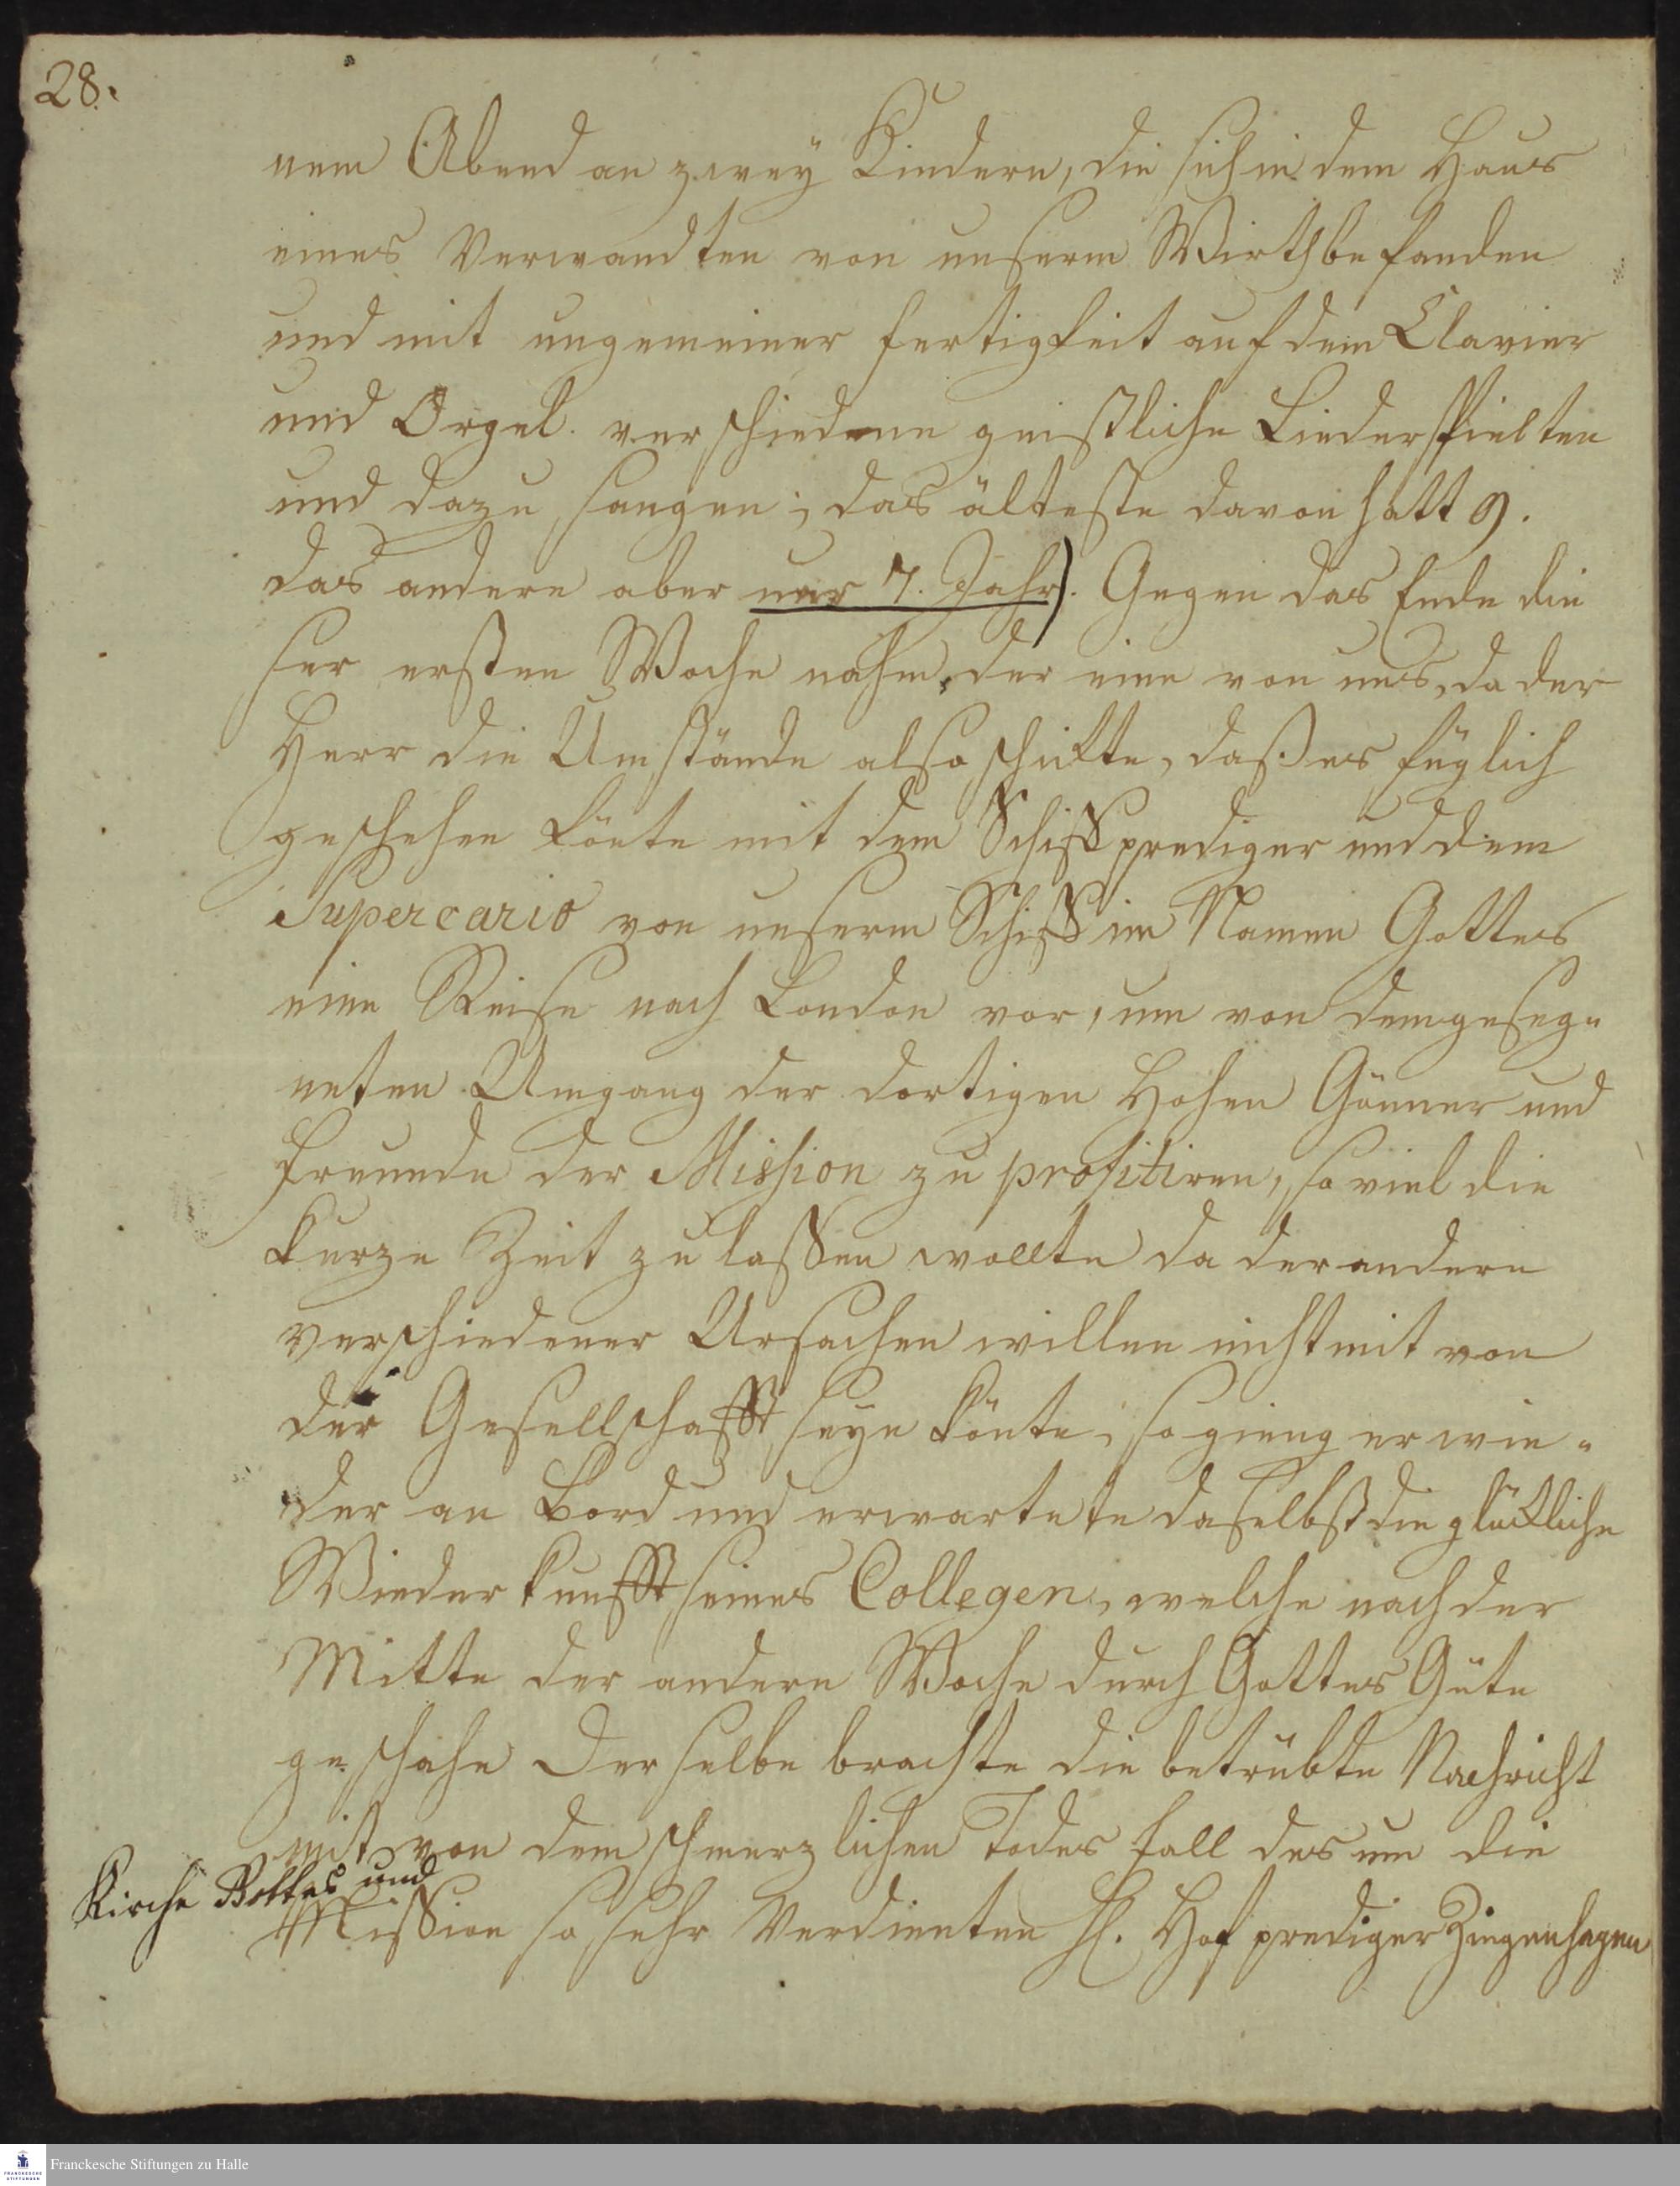 28.
nem Abend an zwey Kindern, die sich in dem Haus
eines Verwandten von unserm Wirth befanden
und mit ungemeiner fertigkeit auf dem Clavier
und Orgel verschiedene geistliche Lieder spielten
und dazu sangen; das älteste davon hatt 9.
das andere aber nur 7. Jahr). Gegen das Ende die
ser ersten Woche nahm, der eine von uns, da der
Herr die Umstände also schikte, daß es füglich
geschehen könte mit dem Schiffprediger und dem
Supercario von unserm Schiff im Namen Gottes
eine Reise nach London vor, um von dem geseg-
neten Umgang der dortigen Hohen Gönner und
freunde der Mission zu profitiren, so viel die
kurze Zeit zulassen wollte da der andere
verschiedener Ursachen willen nicht mit von
der Gesellschafft seyn könte; so gieng er wie-
der an Bord und erwartete daselbst die glükliche
Wiederkunfft seines Collegen, welche nach der
Mitte der andern Woche durch Gottes Güte
geschahe Derselbe brachte die betrübte Nachricht
mit von dem schmerzlichen Todes fall des um die
Kirche Gottes und
Mission so sehr Verdienten H. Hofprediger Ziegenhagen
Franckesche Stiftungen zu Halle
FRANCKESCHE
STIFTUNGEN